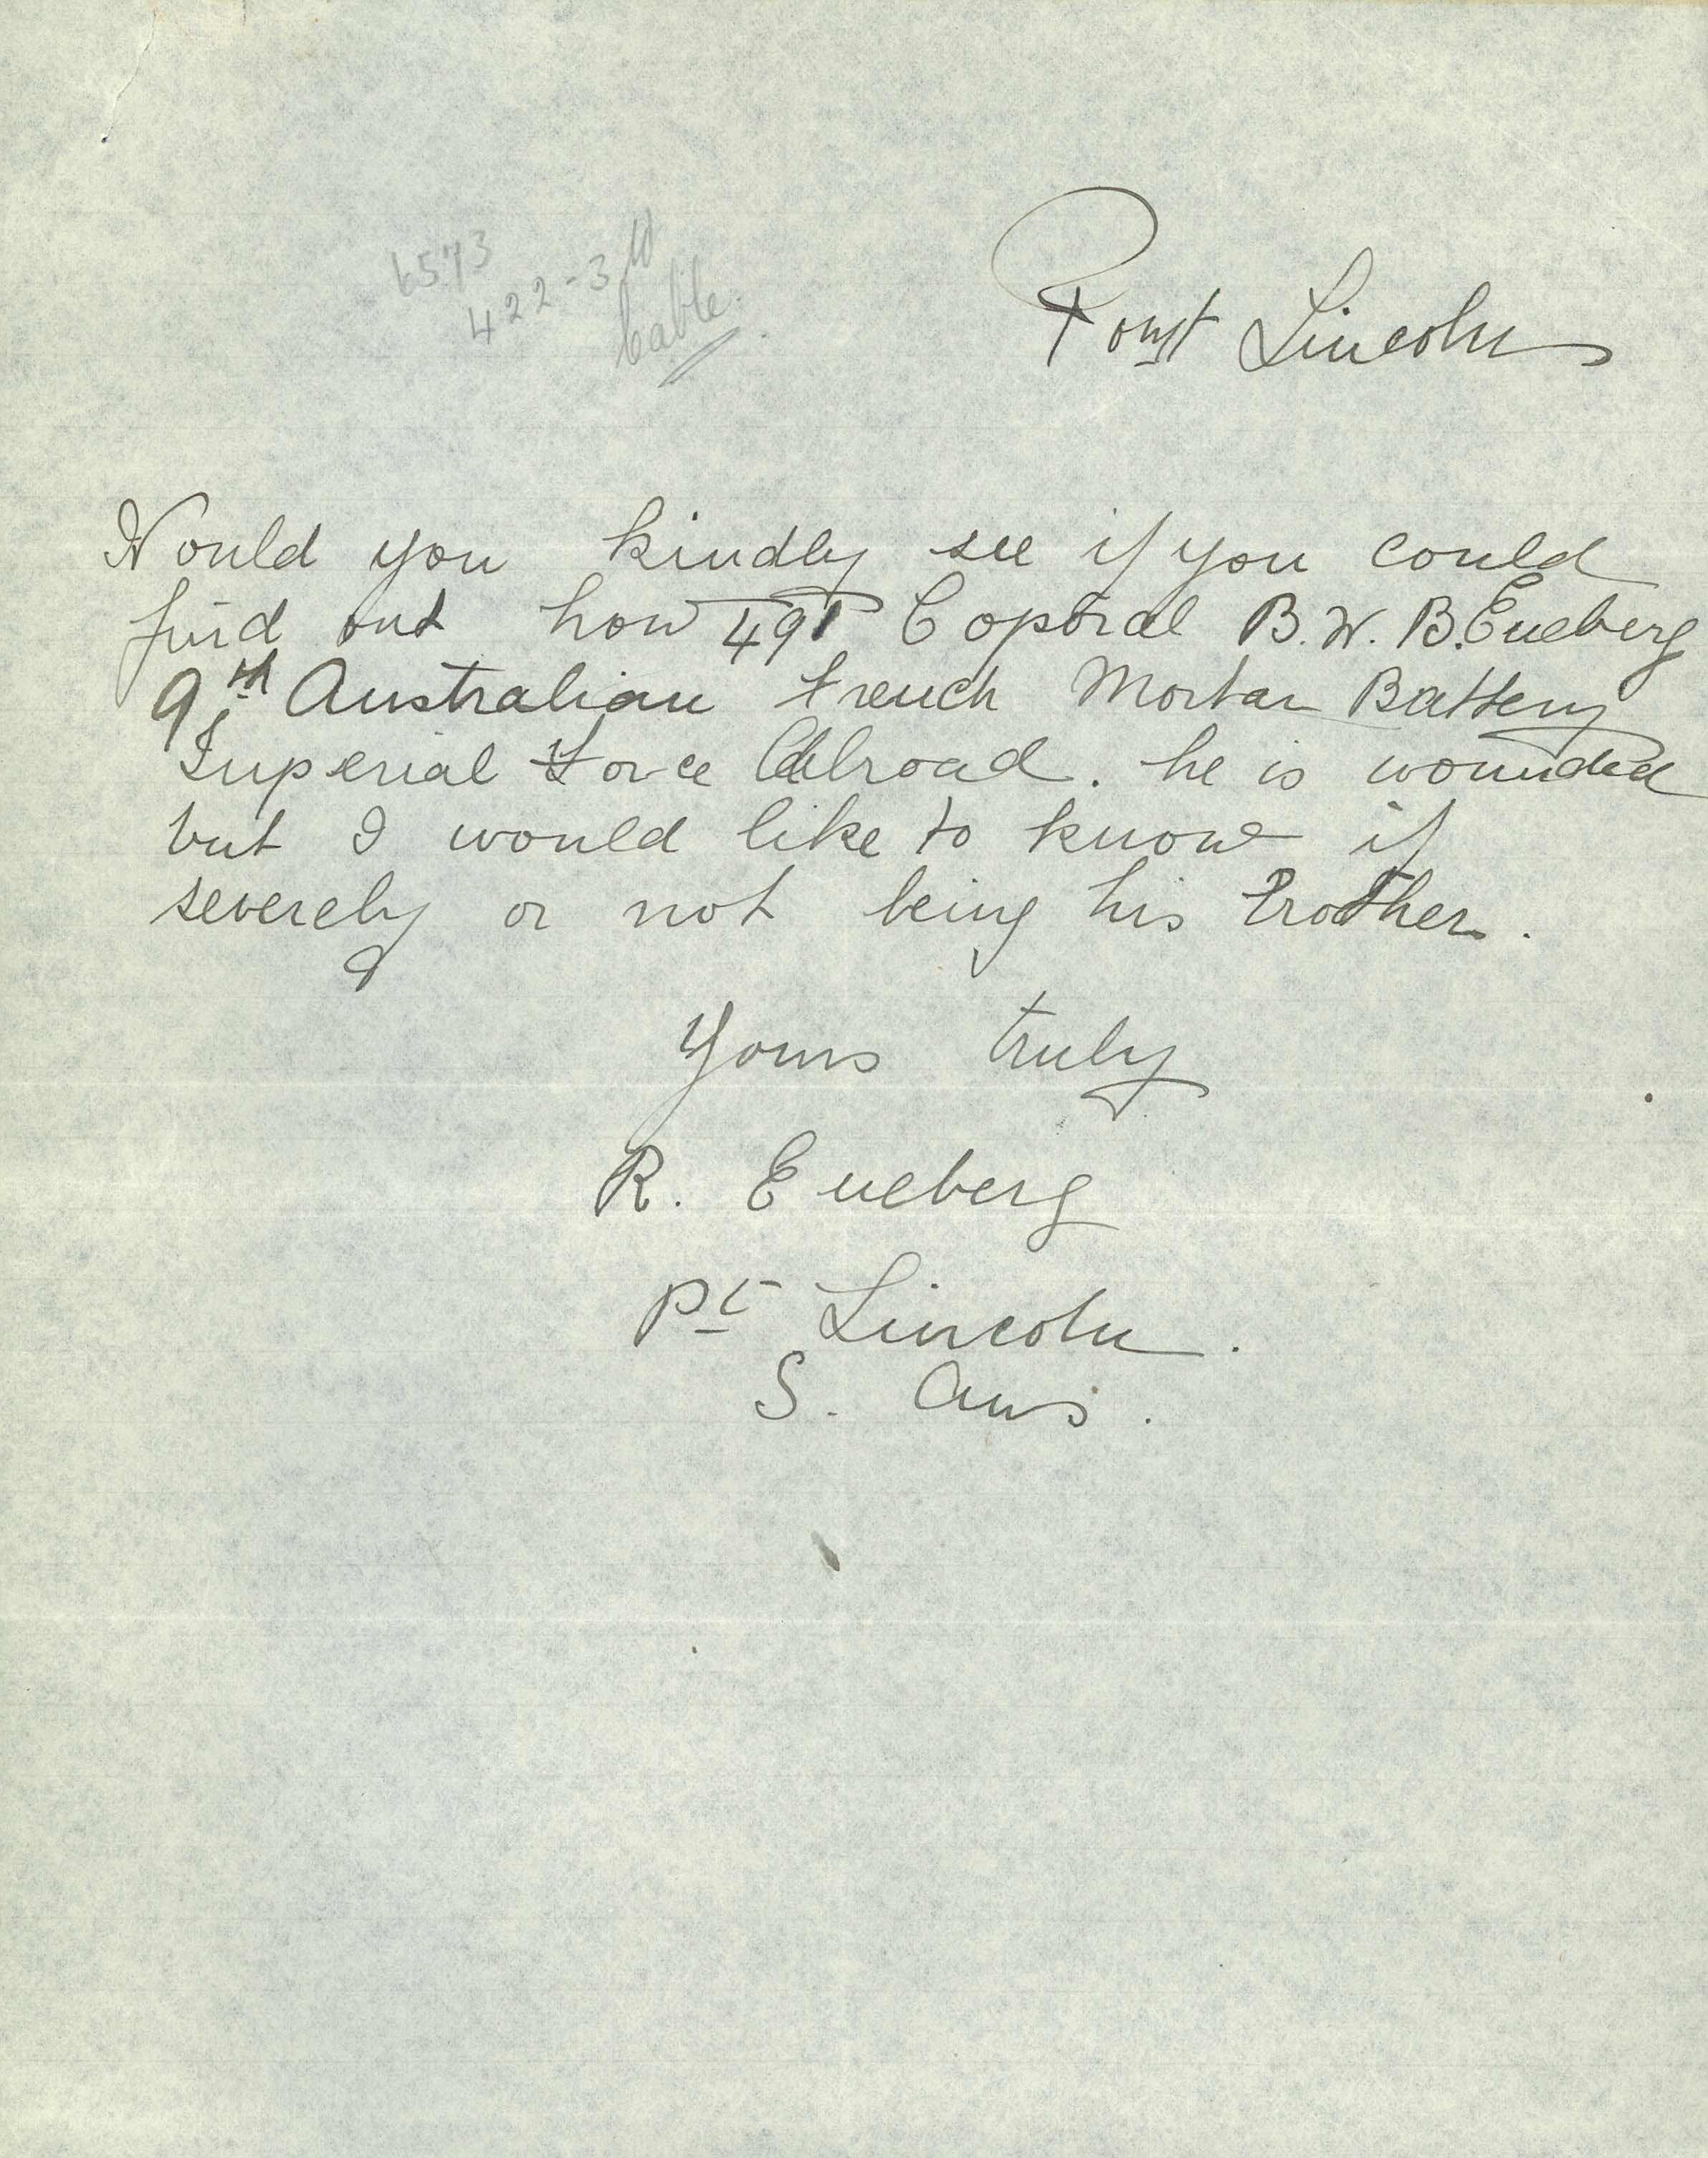 6573
422-3
Cable.
Port Lincoln
Would you kindly see if you could
find out how 491 Coporal B. W. B. Eneberg
9th Australian trench Mortar Battery
Imperial Force Abroad. he is wounded
but I would like to know if
severely or not being his Brother.
Yours truly
R. Eneberg
Pt Lincoln.
S. Aus.